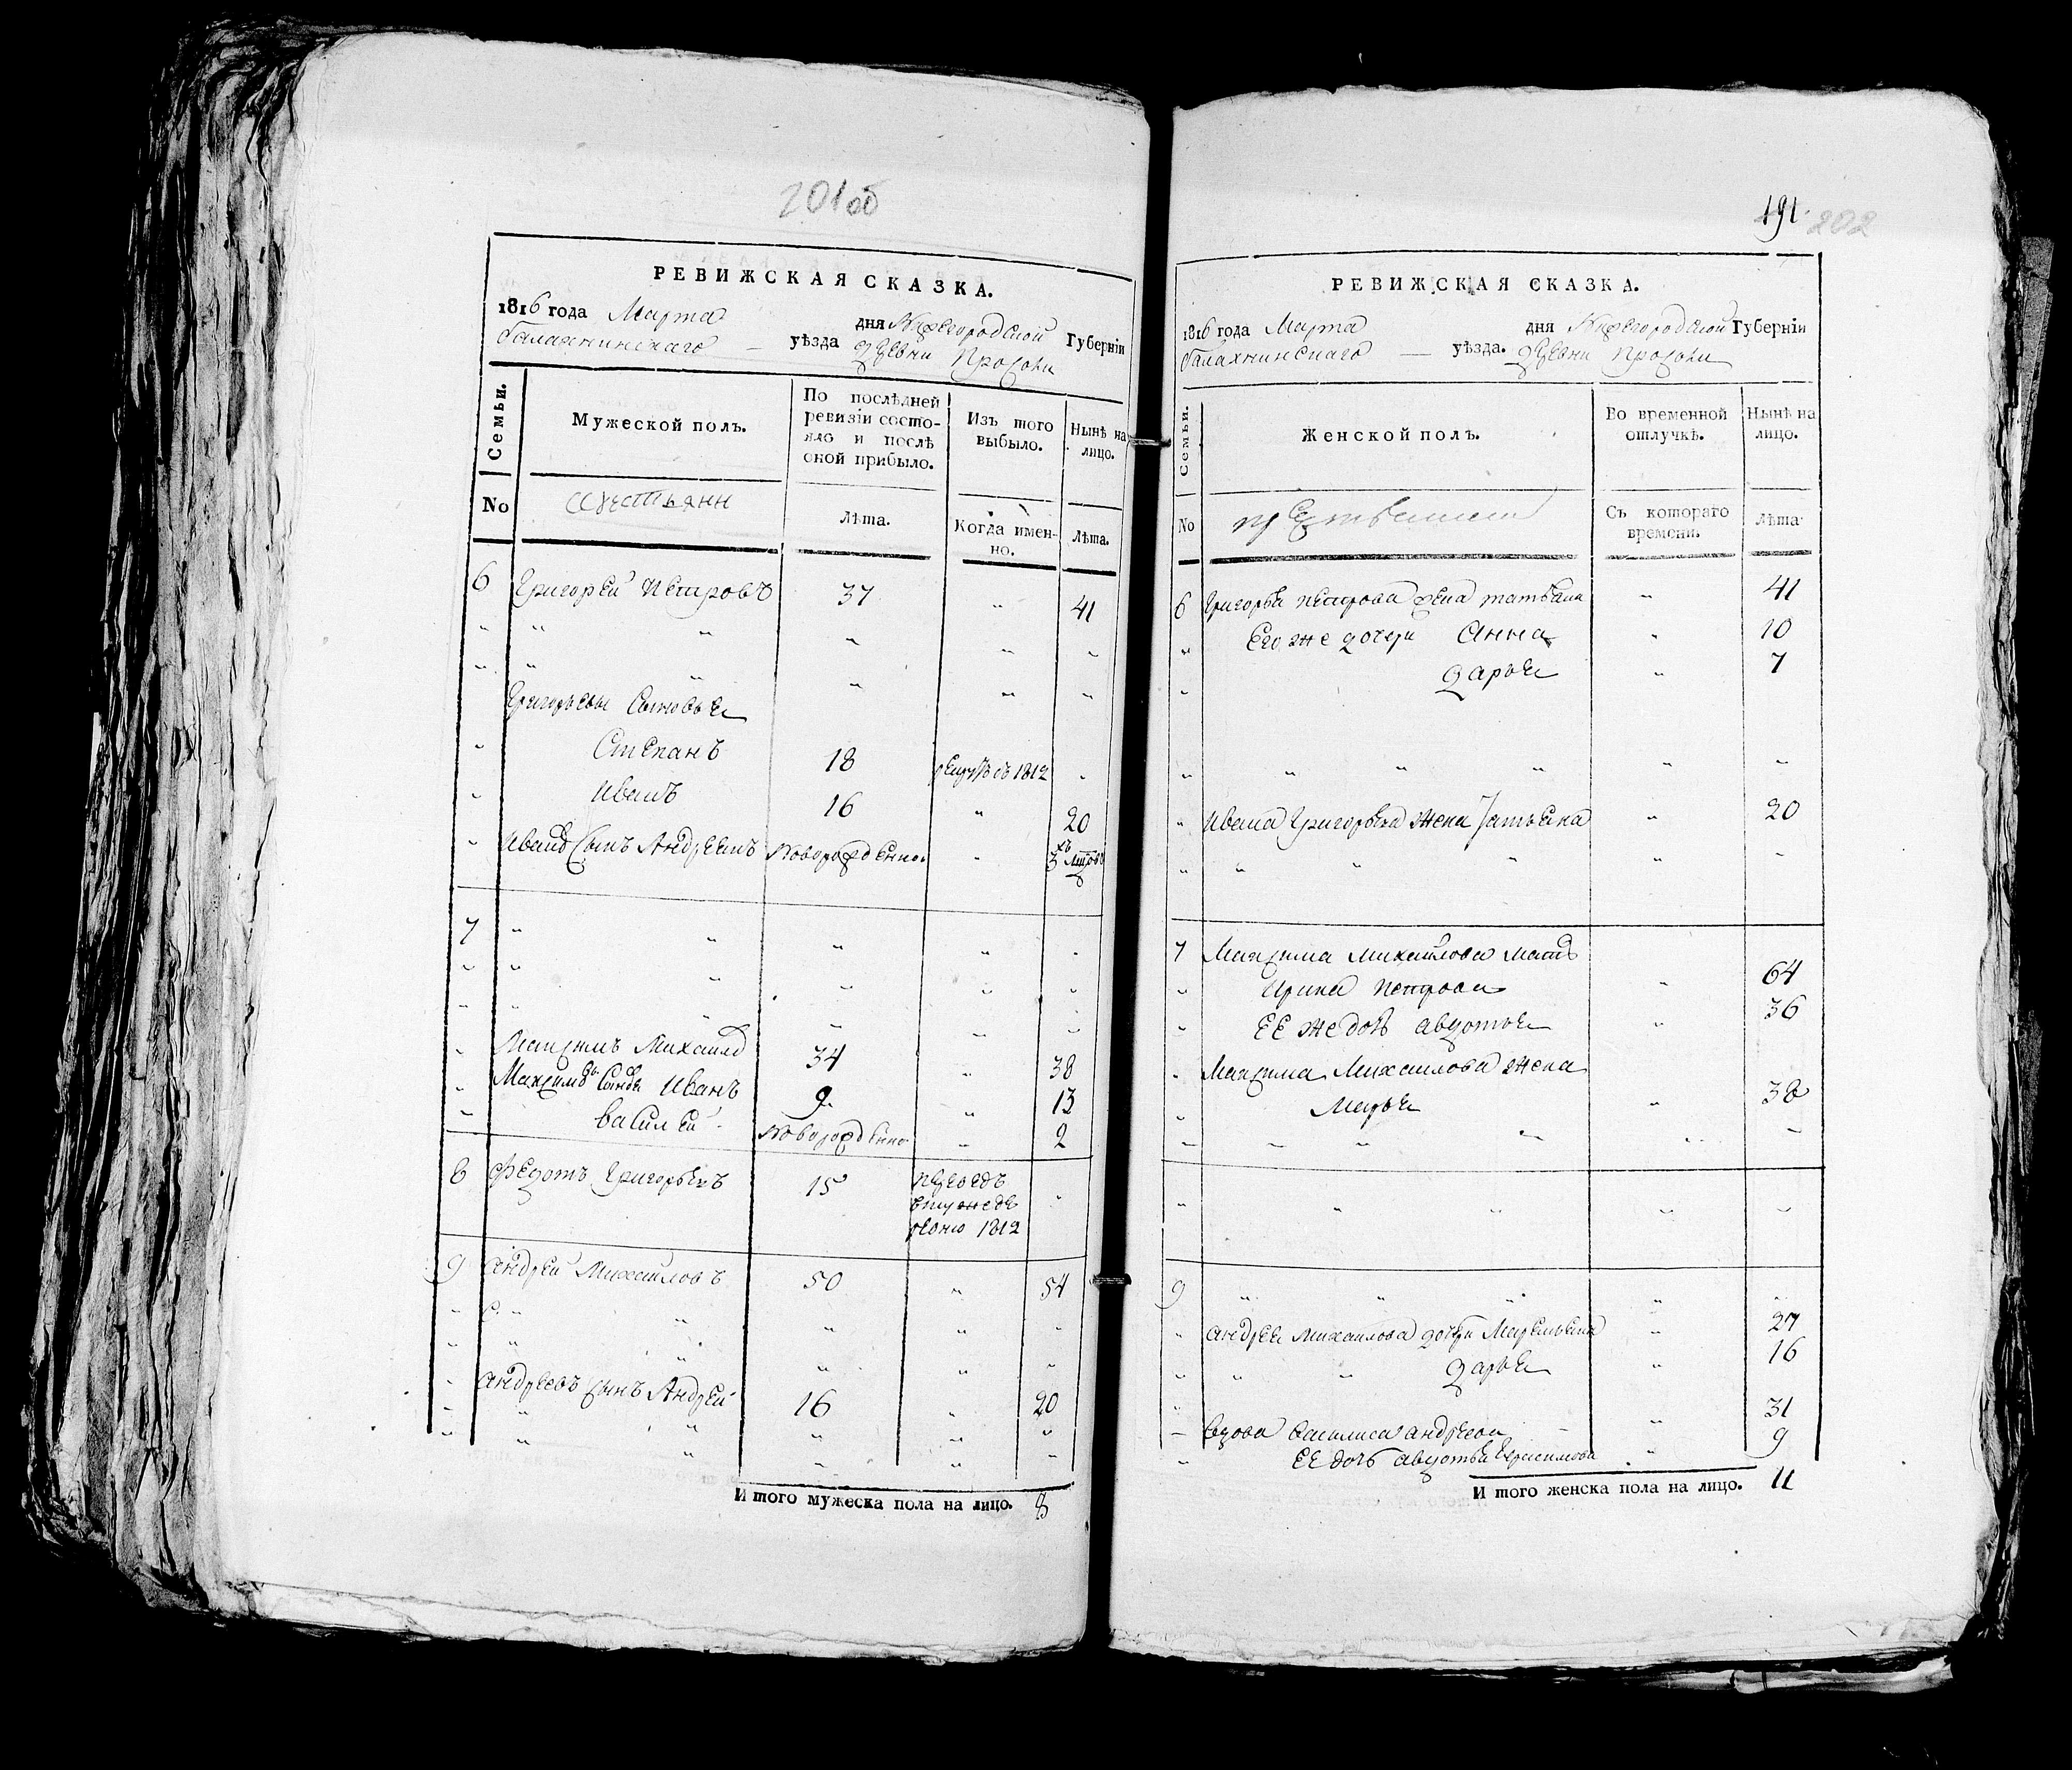 201об
РЕВИЖСКАЯ СКАЗКА.
1816 года Марта дня Нижегородской Губерніи
балахнинскаго уѣзда деревни
Семьи.
Мужеской полъ.
По послѣдней ревизіи состояло и послѣ оной прибыло.
Изъ того выбыло.
Нынѣ на лицо.
No
Лѣта.
Когда именно.
Лѣта.
6 Григорей Петровъ 37 " 41
Григорьевы Сыновья
Степанъ 18 рекрутъ съ 1812
Иванъ 16 " 20
Ивана Сынъ Андреянъ Новорожденно. " 3
7
Максимъ Михайло 34 " 38
Максимо Сыновья Иванъ 9 " 13
Василей Новорожденно " 2
8 Федотъ Григорьевъ 15 1812
9 Андрей Михайловъ 50 " 54
Андреевъ сынъ Андрей 16 " 20
И того мужеска пола на лицо. 8
191. 202
РЕВИЖСКАЯ СКАЗКА.
1816 года Марта дня Нижегородской Губерніи
балахнинскаго уѣзда. деревни
Семьи.
Женской полъ.
Во временной отлучкѣ.
Нынѣ на лицо.
No
Съ котораго времени.
Лѣта.
6 Григорья Петрова жена татьяна " 41
Его же дочери Анна " 10
дарья " 7
Ивана Григорьева жена Татьяна " 20
7 Максима Михайлова мать
Ирина Петрова " 64
ЕЕ же дочь авдотья " 36
Максима Михаилова жена
Марья " 38
9
андрея михаилова дочери Маремьяна " 27
дарья " 16
вдова василиса андреева " 31
ЕЕ дочь авдотья Герасимова " 9
И того женска пола на лицо. 11